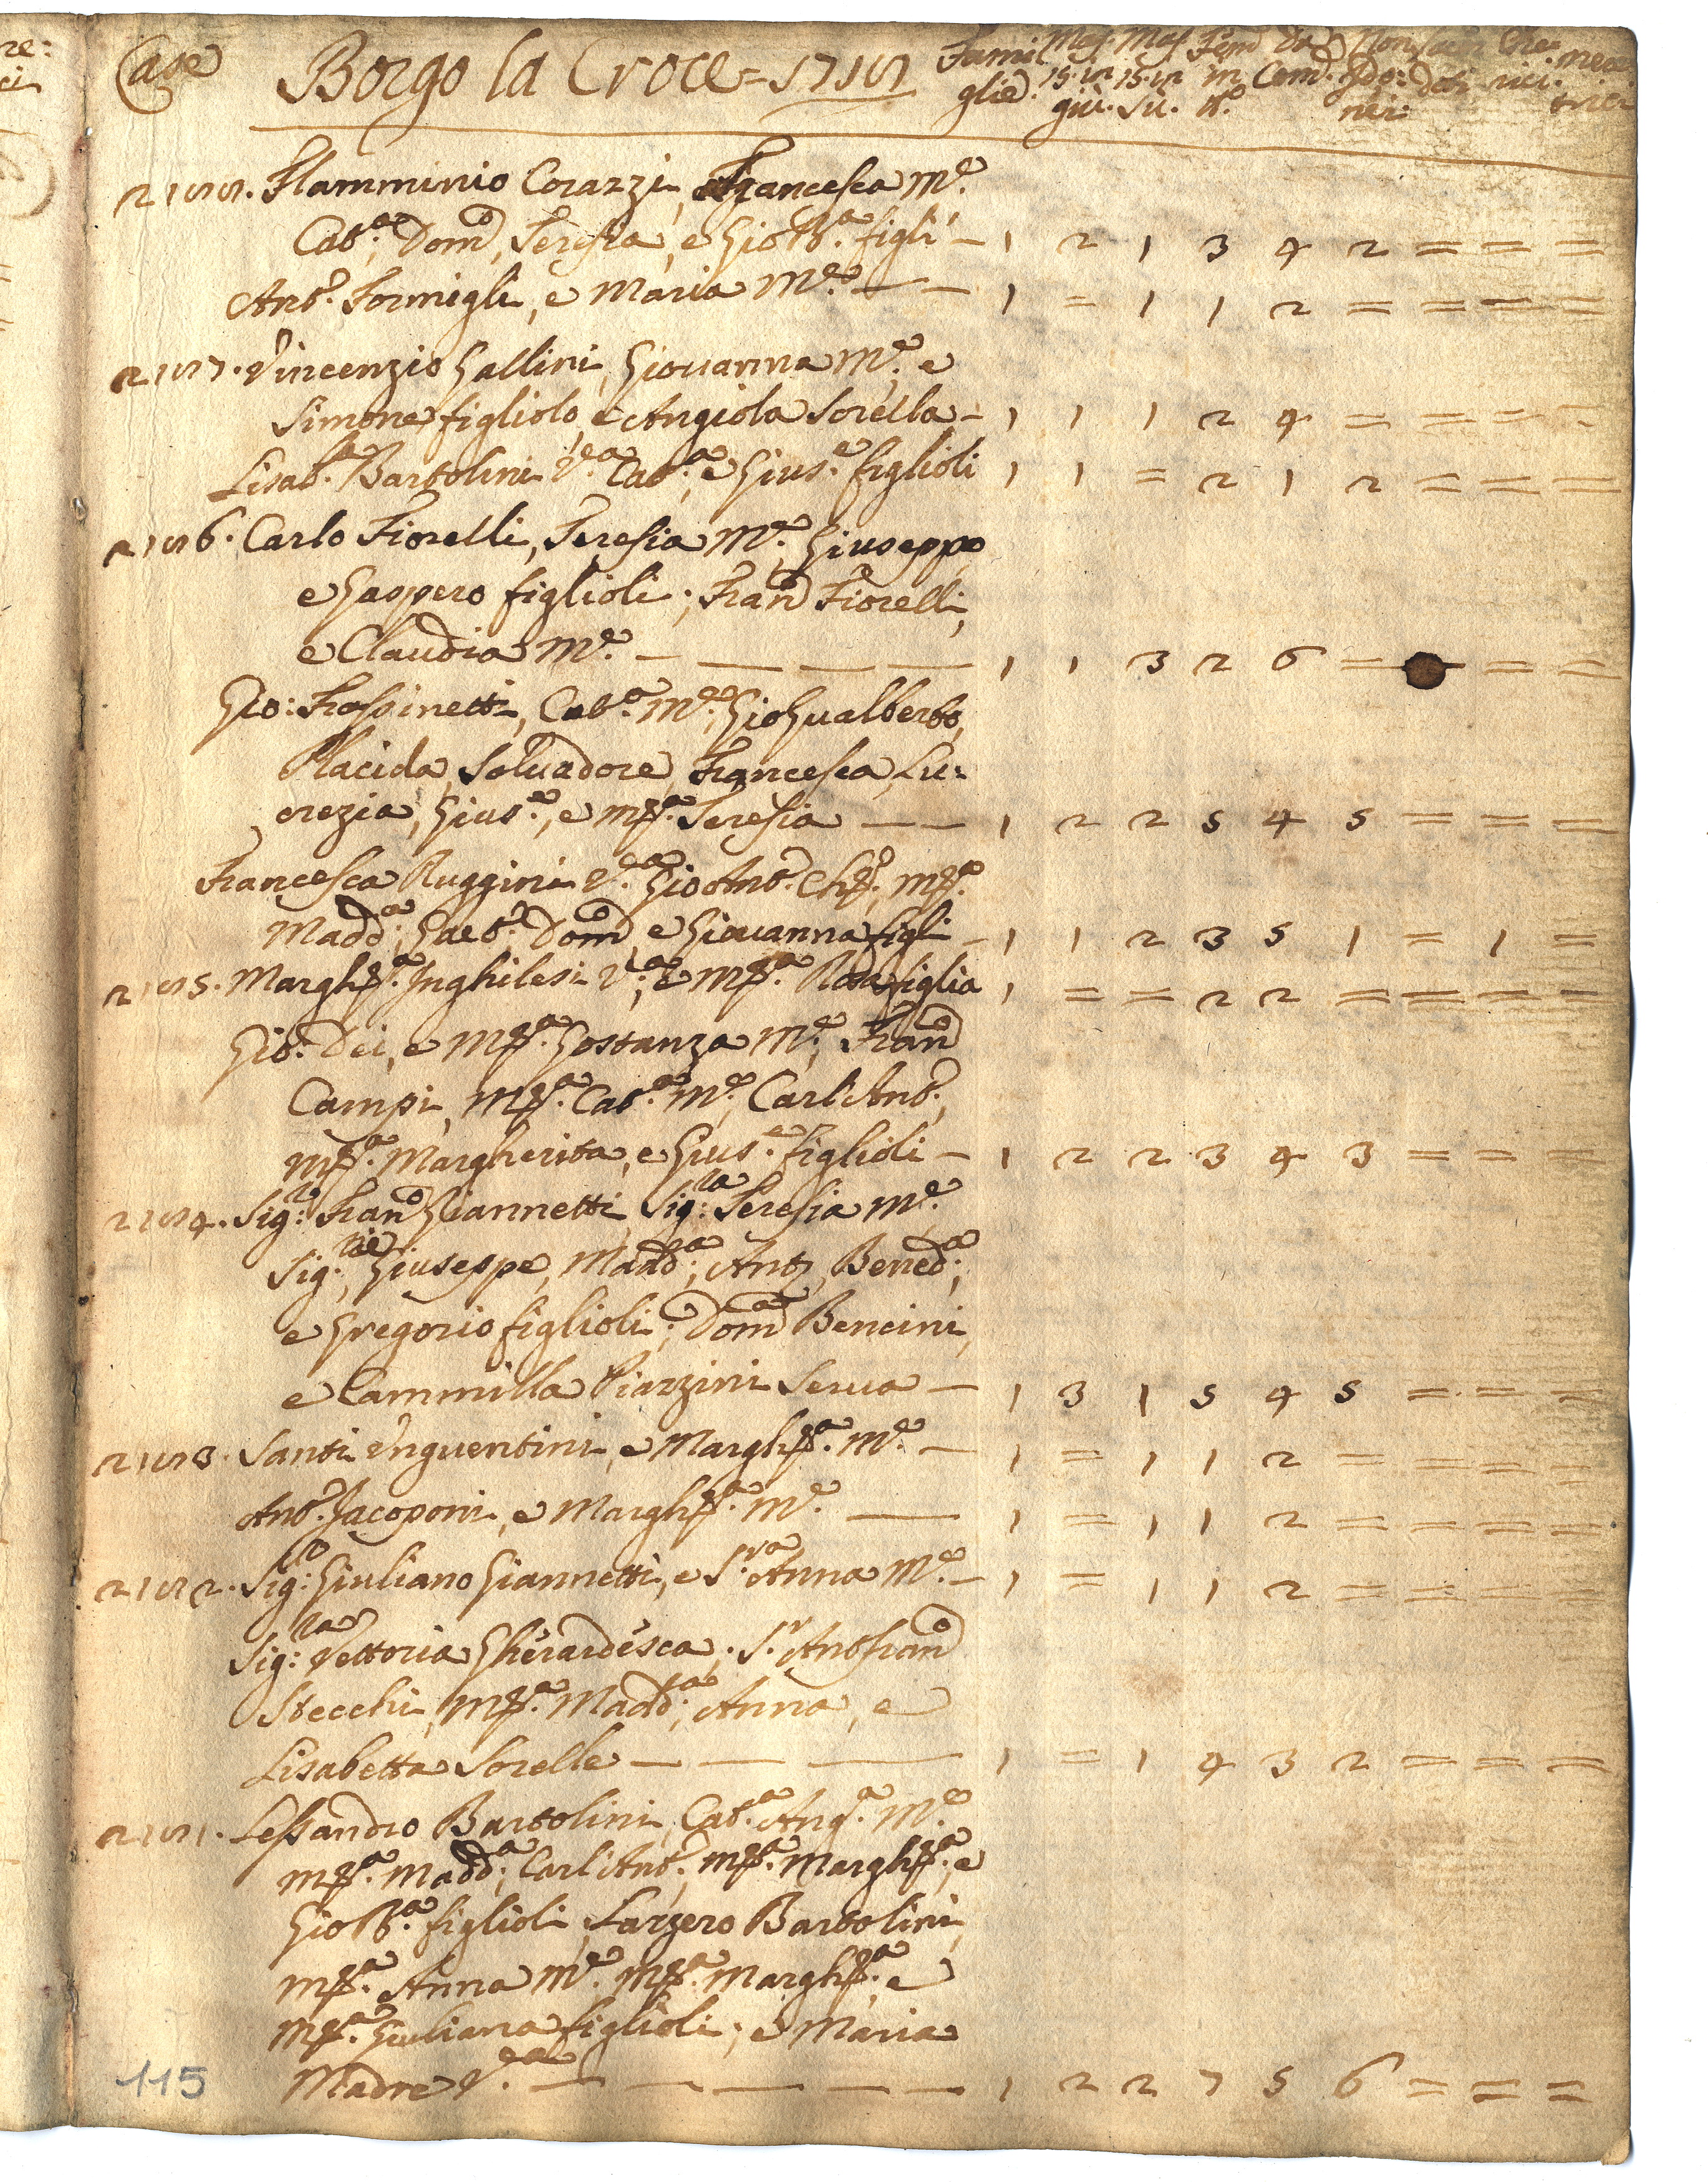 Case Borgo la Croce = 1715
Fami glie. Mas. 15. in giù. Mas. 15. in sù. Fem in tt.º Da Com. Non Ido: nei. Sacer doti Che rici. mona
Flamminio Corazzi, Francesca M.e
Cat.a, Dom.co, Teresia, e Gio B.a figli - 1 2 1 3 4 2 = = =
Ant.o Formigli, e Maria M.e — — 1 = 1 1 2 = = = =
2157. Vincenzio Gallini, Giovanna M.e, e
Simone figliolo, e Angiola Sorella - 1 1 1 2 4 = = = =
Lisab.a Bartolini V.a Cat.a, e Gius.e figlioli 1 1 = 2 1 2 = = =
2156. Carlo Fiorelli, Teresia M.e, Giuseppe
e Gaspero figlioli; Fran.co Fiorelli,
e Claudia M.e — — — — 1 1 3 2 6 = = = =
Gio: Frassinetti, Cat.a M.e, Gio Gualberto,
Placida, Salvadore, Francesca, Lu:
crezia, Gius.e, e M.a Teresia — — 1 2 2 5 4 5 = = =
Francesca Ruggini V.a Gio Ant.o Ch.o, M.a
Madd.a, Gaet.o, Dom.co e Giovanna figli - 1 1 2 3 5 1 = 1 =
2155. Margh.a Inghilesi V.a, e M.a Rosa figlia 1 = = 2 2 = = = =
Gio. Dei, e M.a Gostanza M.e, Fran.co
Campi, M.a Cat.a M.e, Carl'Ant.o,
M.a Margherita, e Gius.e figlioli - 1 2 2 3 4 3 = = =
2154. Sig.r Fran.co Giannetti, Sig.ra Teresia M.e
Sig.ri Giuseppe, Madd.a, Ant.o, Bened.a,
e Gregorio figlioli; Dom.ca Bencini,
e Cammilla Piazzini Serva — 1 3 1 5 4 5 = = =
2153. Santi Unguentini, e Margh.a M.e — 1 = 1 1 2 = = = =
Ant.o Jacoponi, e Margh.a M.e — 1 = 1 1 2 = = = =
2152. Sig.r Giuliano Giannetti, e S.ra Anna M.e - 1 = 1 1 2 = = = =
Sig.ra Vettoria Gherardesca; S.r Ant Fran.co
Stecchi, M.a Madd.a, Anna, e
Lisabetta Sorelle — — — 1 = 1 4 3 2 = = =
2151. Lessandro Bartolini, Cat.a Ang.a M.e
M.a Madd.a, Carl'Ant.o, M.a Margh.a, e
Gio B.a figlioli, Lazzero Bartolini,
M.a Anna M.e M.a Margh.a, e
M.a Giuliana figlioli; e Maria
Madre V.a — — — — — 1 2 2 7 5 6 = = =
115